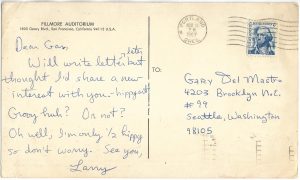 FILLMORE AUDITORIUM
1805 Geary Blvd., San Francisco, California 94115 U.S.A.
Dear Gas,
Will write letter later
but thought I'd share a new
interest with you - hippyos
Groovy huh? Or not?
Oh well, I'm only 1/2 hippy
so don't worry. See you,
Larry
TO:
PORTLAND
OREG.
PM
Gary Del Mastro
4203 Brooklyn N.E.
#99
Seattle, Washington
98105